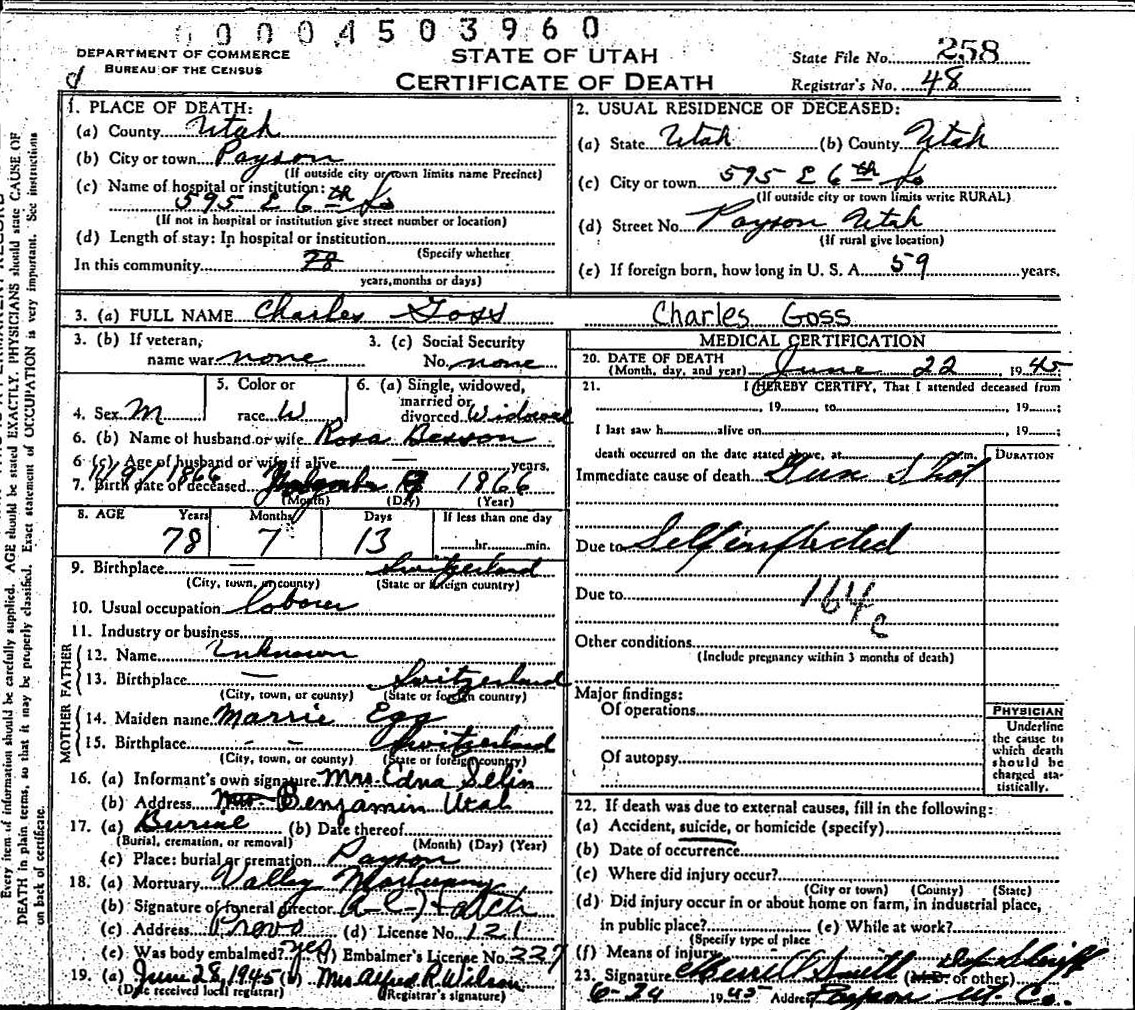 00004503960
DEPARTMENT OF COMMERCE
BUREAU OF THE CENSUS
STATE OF UTAH
CERTIFICATE OF DEATH
State File No. 258
Registrar's No. 48
Every item of information should be carefully supplied. AGE should be stated EXACTLY. PHYSICIANS should state CAUSE OF
DEATH in plain terms, so that it may be properly classified. Exact statement of OCCUPATION is very important. See instructions
on back of certificate.
1. PLACE OF DEATH:
(a) County Utah
(b) City or town Payson
(If outside city or town limits name Precinct)
(c) Name of hospital or institution:
595 E 6th So
(If not in hospital or institution give street number or location)
(d) Length of stay: In hospital or institution
(Specify whether
In this community 78
years, months or days)
2. USUAL RESIDENCE OF DECEASED:
(a) State Utah (b) County Utah
(c) City or town 595 E 6th So
(If outside city or town limits write RURAL)
(d) Street No. Payson Utah
(If rural give location)
(e) If foreign born, how long in U. S. A. 59 years.
3. (a) FULL NAME Charles Goss Charles Goss
3. (b) If veteran,
name war none
3. (c) Social Security
No. none
4. Sex M
5. Color or
race W
6. (a) Single, widowed,
married or
divorced Widowed
6. (b) Name of husband or wife Rosa Besson
6 (c) Age of husband or wife if alive — years.
7. Birth date of deceased 1866
(Month) (Day) (Year)
8. AGE Years Months Days If less than one day
78 7 13 hr. min.
9. Birthplace — Switzerland
(City, town, or county) (State or foreign country)
10. Usual occupation laborer
11. Industry or business
FATHER
12. Name Unknown
13. Birthplace — Switzerland
(City, town, or county) (State or foreign country)
MOTHER
14. Maiden name Marrie Egg
15. Birthplace - - Switzerland
(City, town, or county) (State or foreign country)
16. (a) Informant's own signature Mrs. Edna Selin
(b) Address Benjamin Utah
17. (a) Burial (b) Date thereof
(Burial, cremation, or removal) (Month) (Day) (Year)
(c) Place: burial or cremation Payson
18. (a) Mortuary Valley Mortuary
(b) Signature of funeral director Hatch
(c) Address Provo (d) License No. 121
(e) Was body embalmed? yes (f) Embalmer's License No. 227
19. (a) June 28, 1945 (b) Mrs Alfred R. Wilson
(Date received local registrar) (Registrar's signature)
MEDICAL CERTIFICATION
20. DATE OF DEATH
(Month, day, and year) June 22, 1945
21. I HEREBY CERTIFY, That I attended deceased from
, 19 , to , 19 ;
I last saw h alive on , 19 ;
death occurred on the date stated above, at m.
DURATION
Immediate cause of death Gun Shot
Due to Self inflicted
Due to 164 c
Other conditions
(Include pregnancy within 3 months of death)
Major findings:
Of operations
Of autopsy
PHYSICIAN
Underline
the cause to
which death
should be
charged sta-
tistically.
22. If death was due to external causes, fill in the following:
(a) Accident, suicide, or homicide (specify)
(b) Date of occurrence
(c) Where did injury occur?
(City or town) (County) (State)
(d) Did injury occur in or about home on farm, in industrial place,
in public place? (e) While at work?
(Specify type of place
(f) Means of injury
23. Signature Merrill Smith Dep Sheriff (M.D. or other)
6-24 1945 Address Payson Ut. Co.